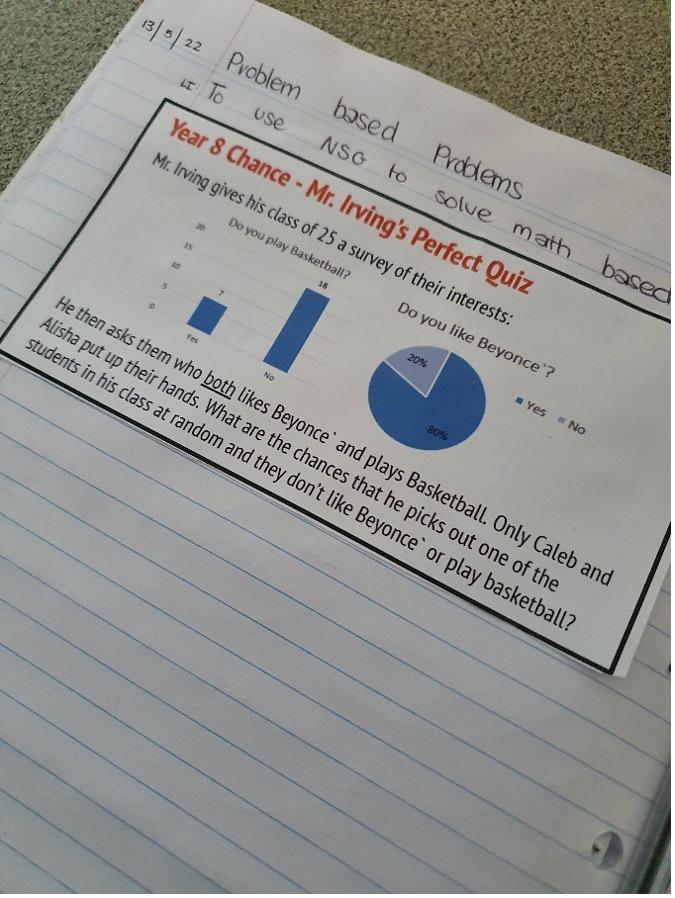 13/5/22
Problem based Problems
LI: To use NSG to solve math based
Year 8 Chance - Mr. Irving's Perfect Quiz
Mr. Irving gives his class of 25 a survey of their interests:
Do you play Basketball?
20
15
10
5
0
7
18
Yes
No
Do you like Beyonce`?
20%
80%
Yes No
He then asks them who both likes Beyonce` and plays Basketball. Only Caleb and
Alisha put up their hands. What are the chances that he picks out one of the
students in his class at random and they don't like Beyonce` or play basketball?